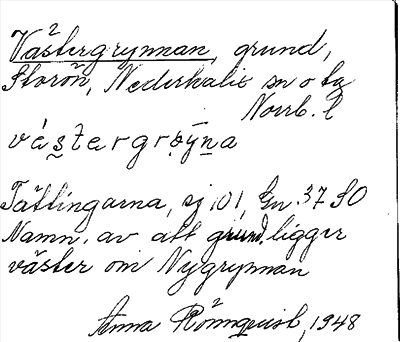 Västergrynnan, grund,
Storön, Nederkalix sn o tg
Norrb. l
västergrøyna
Tätlingarna, sj 101, Gn. 37 SO
Namn. av att grund. ligger
väster om Nygrynnan
Anna Rönnquist, 1948